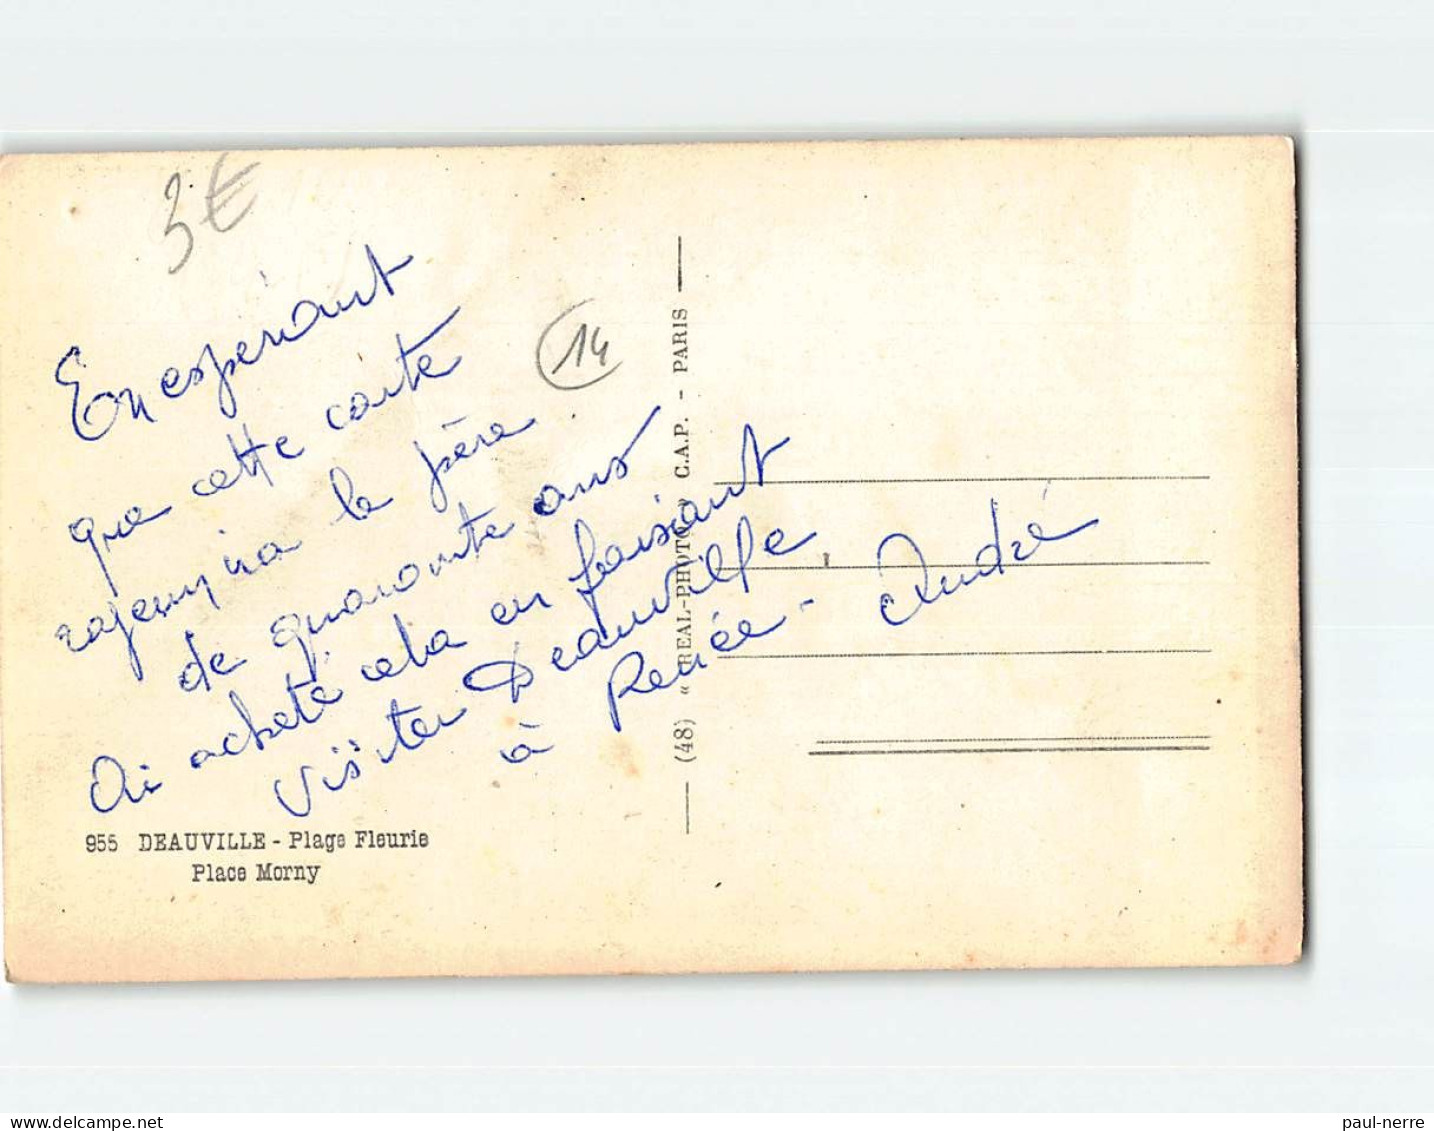 3€
En espérant
que cette carte
rajeunira le père
de quarante ans
Ai acheté cela en faisant
visiter Deauville
à Renée - André
14
955 DEAUVILLE - Plage Fleurie
Place Morny
(48) « REAL-PHOTO » C.A.P. - PARIS
paul-nerre